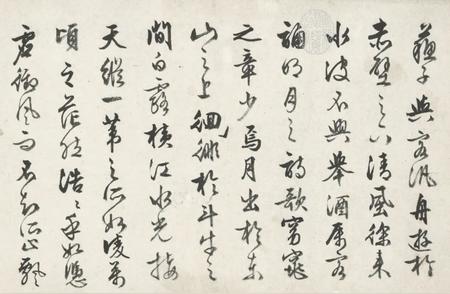 蘇子與客汎舟遊於
赤壁之下清風徐來
水波不興舉酒屬客
誦明月之詩歌窈窕
之章少焉月出於東
山之上徊徘於斗牛之
間白露橫江水光接
天縱一葦之所如凌萬
頃之茫然浩〻乎如憑
虛御風而不知所止飄